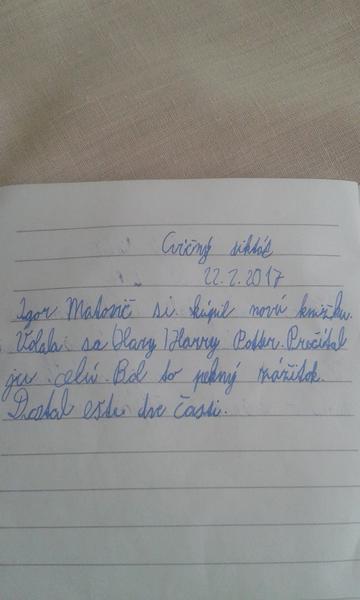 Cvičný diktát
22.2.2017
Igor Matovič si kúpil novú knižku.
Volala sa (Hary) Harry Potter. Prečítal
ju celú. Bol to pekný zážitok.
Dostal ešte dve časti.